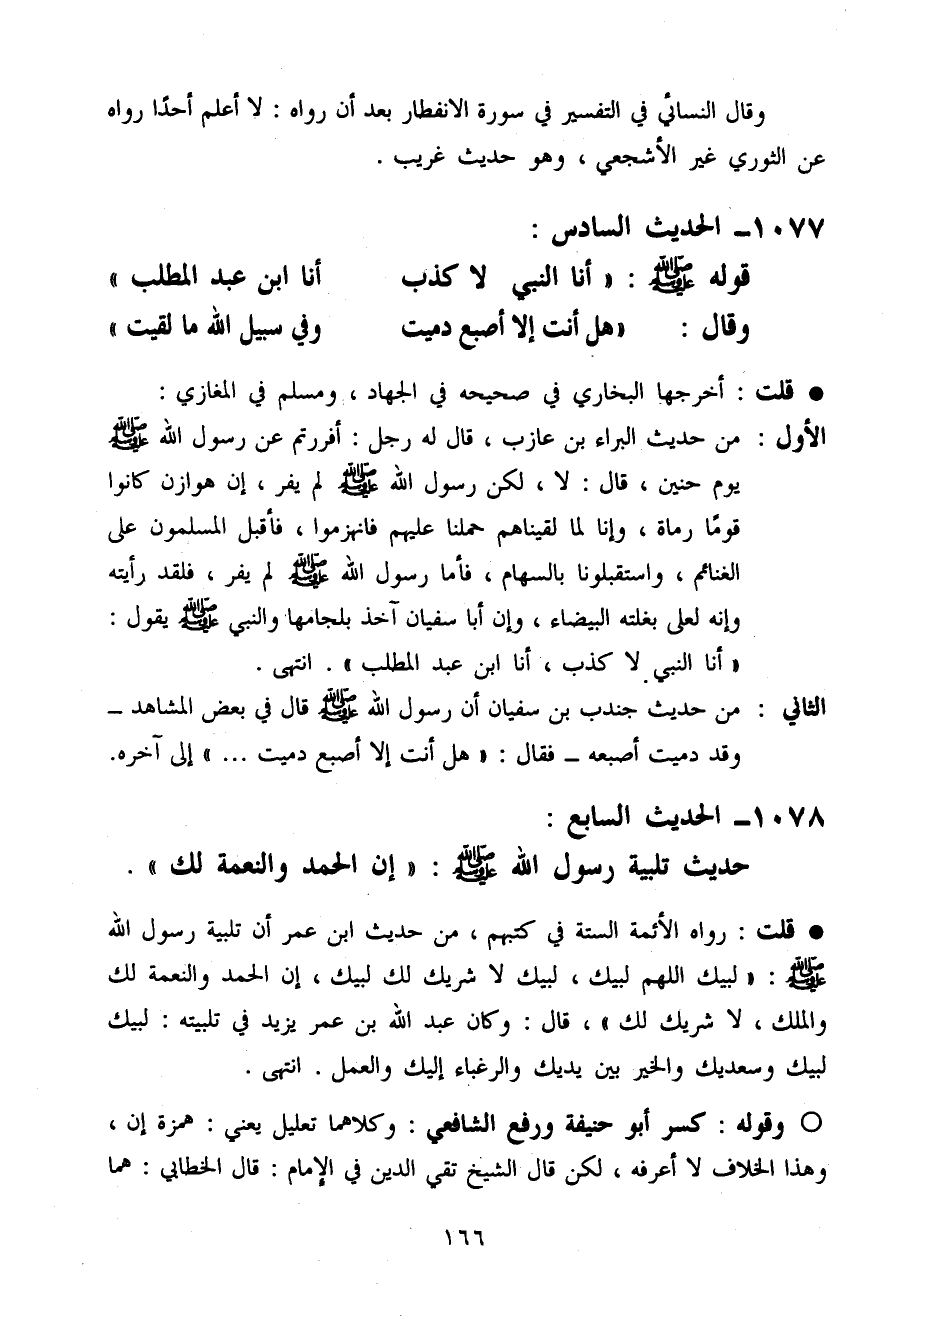 وقال النسائي في التفسير في سورة الانفطار بعد أن رواه : لا أعلم أحدًا رواه
عن الثوري غير الأشجعي ، وهو حديث غريب .
١٠٧٧ـ الحديث السادس :
قوله ﷺ : « أنا النبي لا كذب أنا ابن عبد المطلب »
وقال : «هل أنت إلا أصبع دميت وفي سبيل الله ما لقيت »
● قلت : أخرجها البخاري في صحيحه في الجهاد ، ومسلم في المغازي :
الأول : من حديث البراء بن عازب ، قال له رجل : أفررتم عن رسول الله ﷺ
يوم حنين ، قال : لا ، لكن رسول الله ﷺ لم يفر ، إن هوازن كانوا
قومًا رماة ، وإنا لما لقيناهم حملنا عليهم فانهزموا ، فأقبل المسلمون على
الغنائم ، واستقبلونا بالسهام ، فأما رسول الله ﷺ لم يفر ، فلقد رأيته
وإنه لعلى بغلته البيضاء ، وإن أبا سفيان آخذ بلجامها والنبي ﷺ يقول :
« أنا النبي لا كذب ، أنا ابن عبد المطلب » . انتهى .
الثاني : من حديث جندب بن سفيان أن رسول الله ﷺ قال في بعض المشاهد ـ
وقد دميت أصبعه ـ فقال : « هل أنت إلا أصبع دميت ... » إلى آخره.
١٠٧٨ـ الحديث السابع :
حديث تلبية رسول الله ﷺ : « إن الحمد والنعمة لك » .
● قلت : رواه الأئمة الستة في كتبهم ، من حديث ابن عمر أن تلبية رسول الله
ﷺ : « لبيك اللهم لبيك ، لبيك لا شريك لك لبيك ، إن الحمد والنعمة لك
والملك ، لا شريك لك » ، قال : وكان عبد الله بن عمر يزيد في تلبيته : لبيك
لبيك وسعديك والخير بين يديك والرغباء إليك والعمل . انتهى .
○ وقوله : كسر أبو حنيفة ورفع الشافعي : وكلاهما تعليل يعني : همزة إن ،
وهذا الخلاف لا أعرفه ، لكن قال الشيخ تقي الدين في الإمام : قال الخطابي : هما
١٦٦